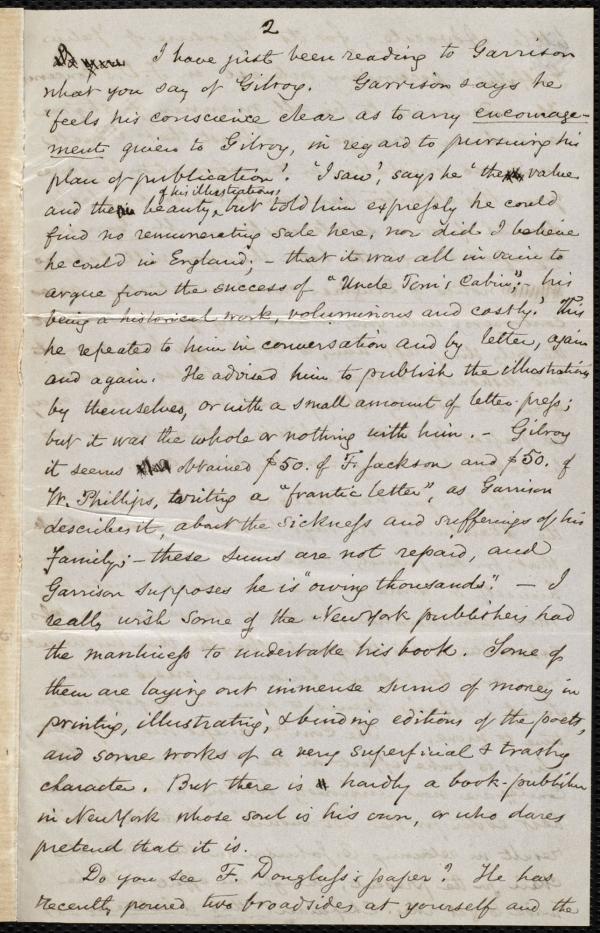 2
I have just been reading to Garrison
what you say of Gilroy. Garrison says he
'feels his conscience clear as to any encourage-
ment given to Gilroy, in regard to pursuing his
plan of publication'. 'I saw', says he 'the value
and the beauty of his illustrations, but told him expressly he could
find no remunerating sale here, nor did I believe
he could in England; - that it was all in vain to
argue from the success of "Uncle Tom's Cabin"; his
being a historical work, voluminous and costly.' This
he repeated to him in conversation and by letter, again
and again. He advised him to publish the illustrations
by themselves, or with a small amount of letter-press;
but it was the whole or nothing with him. - Gilroy
it seems obtained $50. of F. Jackson and $50. of
W. Phillips, writing a "frantic letter", as Garrison
describes it, about the sickness and sufferings of his
family; - these sums are not repaid, and
Garrison supposes he is "owing thousands". - I
really wish some of the New York publishers had
the manliness to undertake his book. Some of
them are laying out immense sums of money in
printing, illustrating, & binding editions of the poets,
and some works of a very superficial & trashy
character. But there is hardly a book-publisher
in New York whose soul is his own, or who dares
pretend that it is.
Do you see F. Douglass's paper? He has
recently poured two broadsides at yourself and the